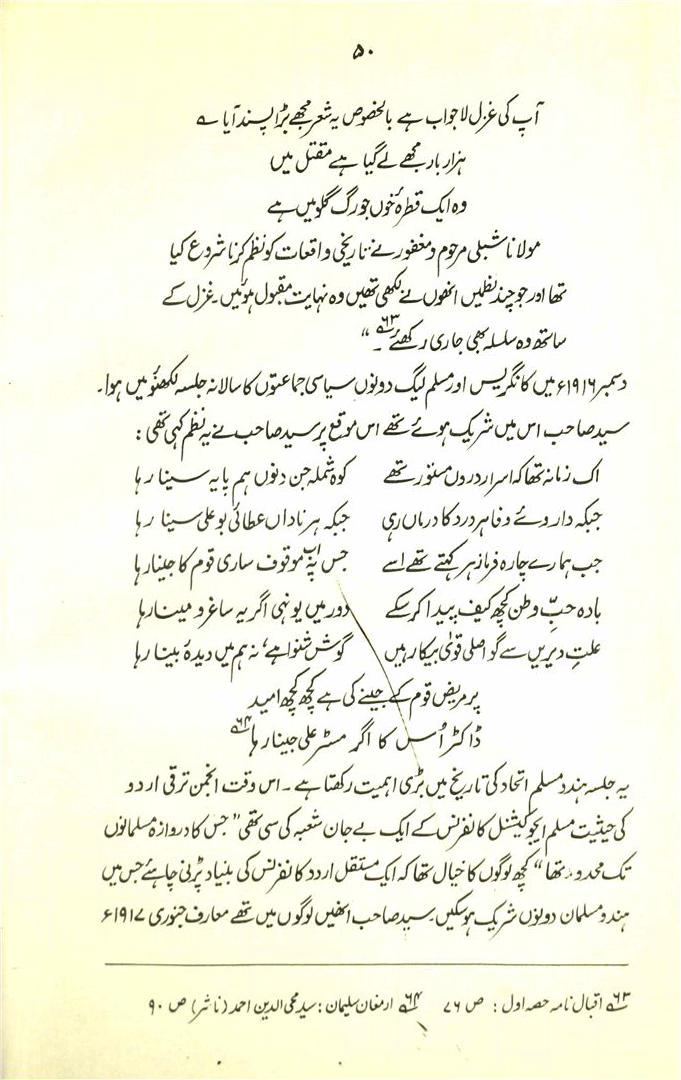 ۵۰
آپ کی غزل لاجواب ہے بالخصوص یہ شعر مجھے بڑا پسند آیا ؎
ہزار بار مجھے لے گیا ہے مقتل میں
وہ ایک قطرۂ خوں جو رگ گلو میں ہے
مولانا شبلی مرحوم و مغفور نے تاریخی واقعات کو نظم کرنا شروع کیا
تھا اور جو چند نظمیں انھوں نے لکھی تھیں وہ نہایت مقبول ہوئیں۔ غزل کے
ساتھ وہ سلسلہ بھی جاری رکھئے ۶۳۔“
دسمبر ۱۹۱۶ء میں کانگریس اور مسلم لیگ دونوں سیاسی جماعتوں کا سالانہ جلسہ لکھنؤ میں ہوا۔
سید صاحب اس میں شریک ہوئے تھے اس موقع پر سید صاحب نے یہ نظم کہی تھی :
اک زمانہ تھا کہ اسرار دروں مستور تھے کوہ شملہ جن دنوں ہم پایہ سینا رہا
جبکہ داروئے وفا ہر درد کا درماں رہی جبکہ ہر ناداں عطائی بو علی سینا رہا
جب ہمارے چارہ فرما زہر کہتے تھے اسے جس پہ اب موقوف ساری قوم کا جینا رہا
بادہ حبِّ وطن کچھ کیف پیدا کر سکے دور میں یونہی اگر یہ ساغر و مینا رہا
علتِ دیریں سے گو اصلی قویٰ بیکار ہیں گوش شنوا ہے، نہ ہم میں دیدۂ بینا رہا
پر مریض قوم کے جینے کی ہے کچھ کچھ امید
ڈاکٹر اُس کا اگر مسٹر علی جینا رہا ۶۴
یہ جلسہ ہندو مسلم اتحاد کی تاریخ میں بڑی اہمیت رکھتا ہے۔ اس وقت انجمن ترقی اردو
کی حیثیت مسلم ایجوکیشنل کانفرنس کے ایک بے جان شعبہ کی سی تھی ”جس کا دروازہ مسلمانوں
تک محدود تھا“ کچھ لوگوں کا خیال تھا کہ ایک مستقل اردو کانفرنس کی بنیاد پڑنی چاہئے جس میں
ہندو مسلمان دونوں شریک ہو سکیں۔ سید صاحب انھیں لوگوں میں تھے معارف جنوری ۱۹۱۷ء
۶۳ اقبال نامہ حصہ اول : ص ۷۶ ۶۴ ارمغان سلیمان : سید محی الدین احمد (ناشر) ص ۹۰